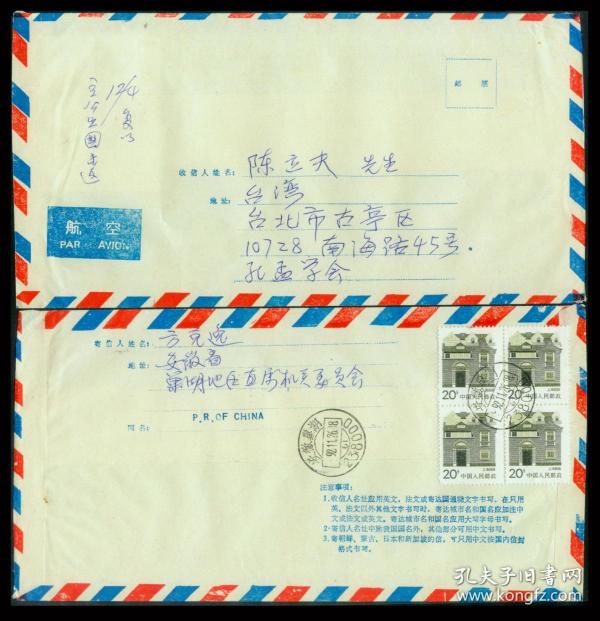 邮 票
12/4
收信人姓名:
陈立夫 先生
地址:
台湾
台北市古亭区
10728 南海路45号.
孔孟学会
航 空
PAR AVION
寄信人姓名:
方克逸
地址:
安徽省
巢湖地区直属机关委员会
国名:
P.R.OF CHINA
20分 中国人民邮政
20分 中国人民邮政
20分 中国人民邮政
20分 中国人民邮政
注意事项:
1.收信人名址应用英文、法文或寄达国通晓文字书写。在只用
英、法文以外其他文字书写时,寄达城市名和国名应加注中
文或法文或英文。寄达城市名和国名应用大写字母书写。
2.寄信人名址中除我国国名外,其他部分可用中文书写。
3.寄朝鲜、蒙古、日本和新加坡的信,可只用中文按国内信封
格式书写。
孔夫子旧书网
www.kongfz.com